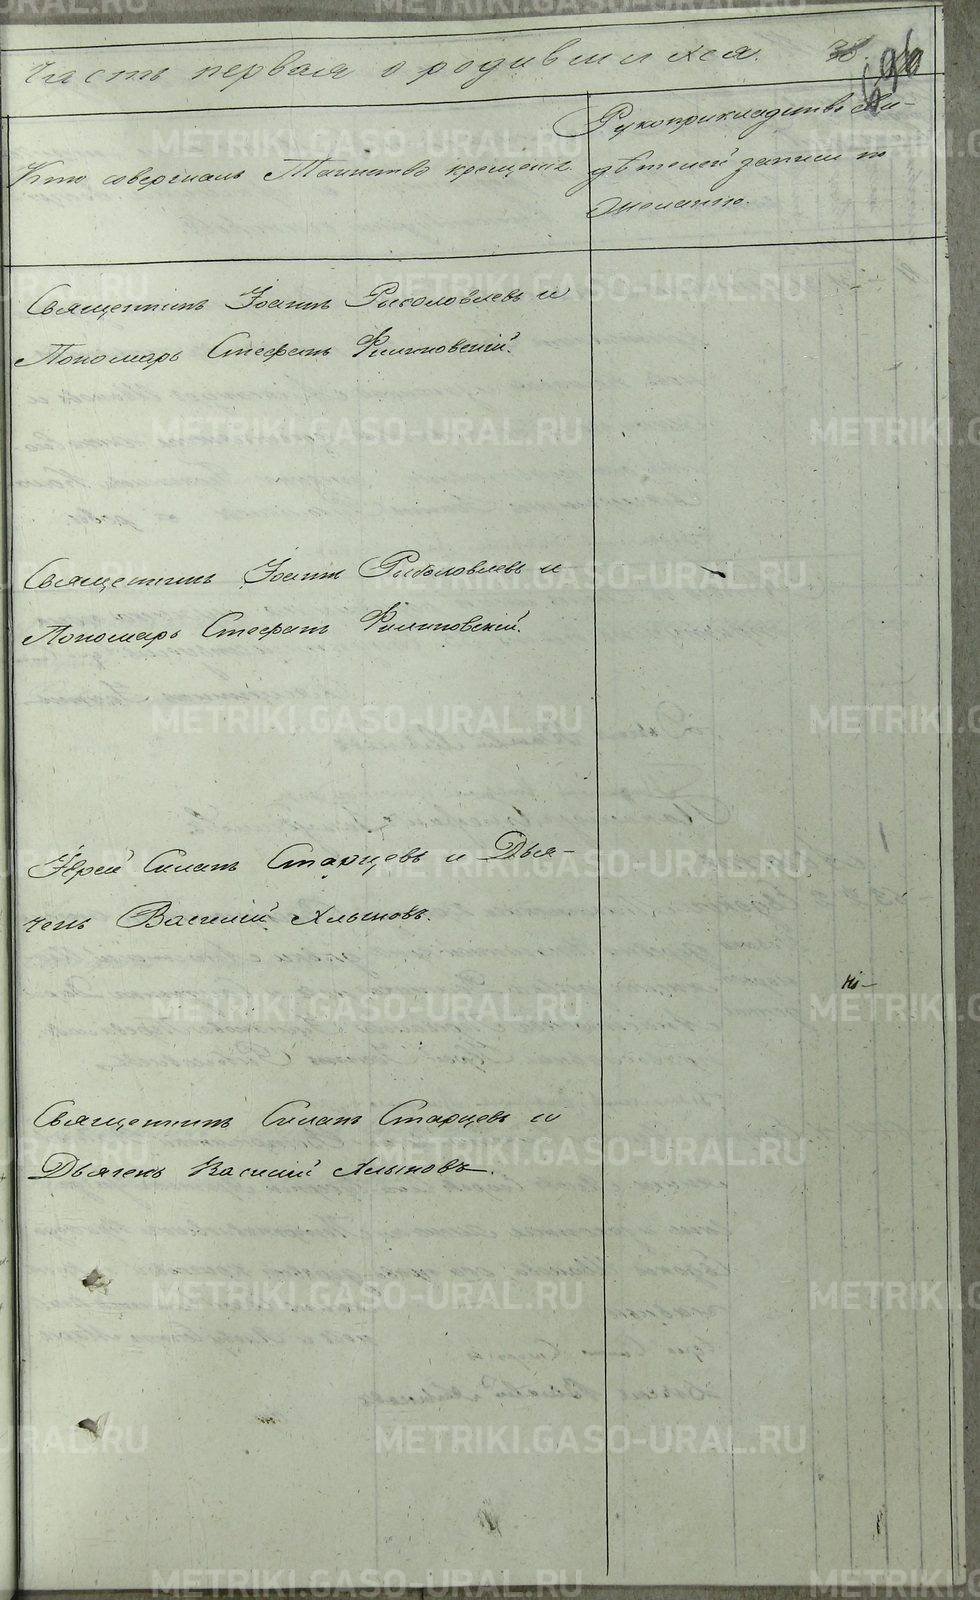 Часть первая о родившихся. 38.
Рукоприкладство сви-
Кто совершалъ Таинство крещенія. дѣтелей записи по
желанію.
Священникъ Іоаннъ Рыболовлевъ и
Пономарь Стефанъ Филиповскій.
Священникъ Іоаннъ Рыболовлевъ и
Пономарь Стефанъ Филиповскій.
Іерей Силанъ Старцевъ и Дья-
чекъ Василій Хлыновъ.
Священникъ Силанъ Старцевъ и
Дьячекъ Василій Хлыновъ.
METRIKI.GASO-URAL.RU